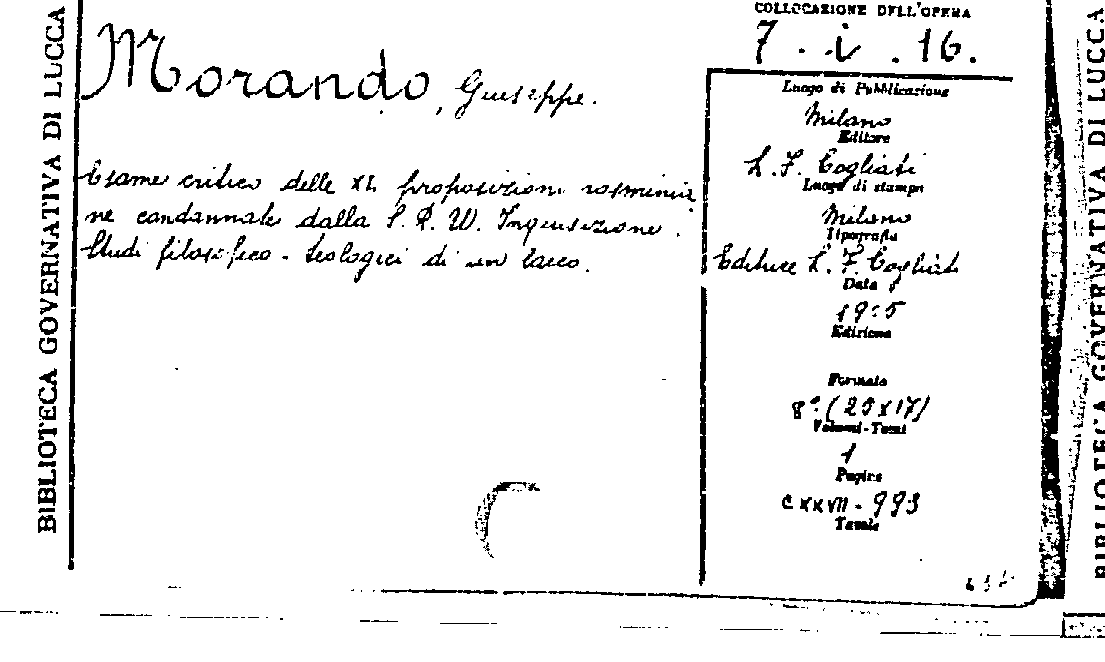 BIBLIOTECA GOVERNATIVA DI LUCCA
Morando, Giuseppe.
Esame critico delle XL proposizioni rosminia
ne condannate dalla S. R. U. Inquisizione.
Studi filosofico-teologici di un laico.
COLLOCAZIONE DELL'OPERA
7. i. 16.
Luogo di Pubblicazione
Milano
Editore
L. F. Cogliati
Luogo di stampa
Milano
Tipografia
Editrice L. F. Cogliati
Data
1905
Edizione
Formato
8° (25x17)
Volumi-Tomi
1
Pagine
CXXVII - 993
Tavole
BIBLIOTECA GOVERNATIVA DI LUCCA